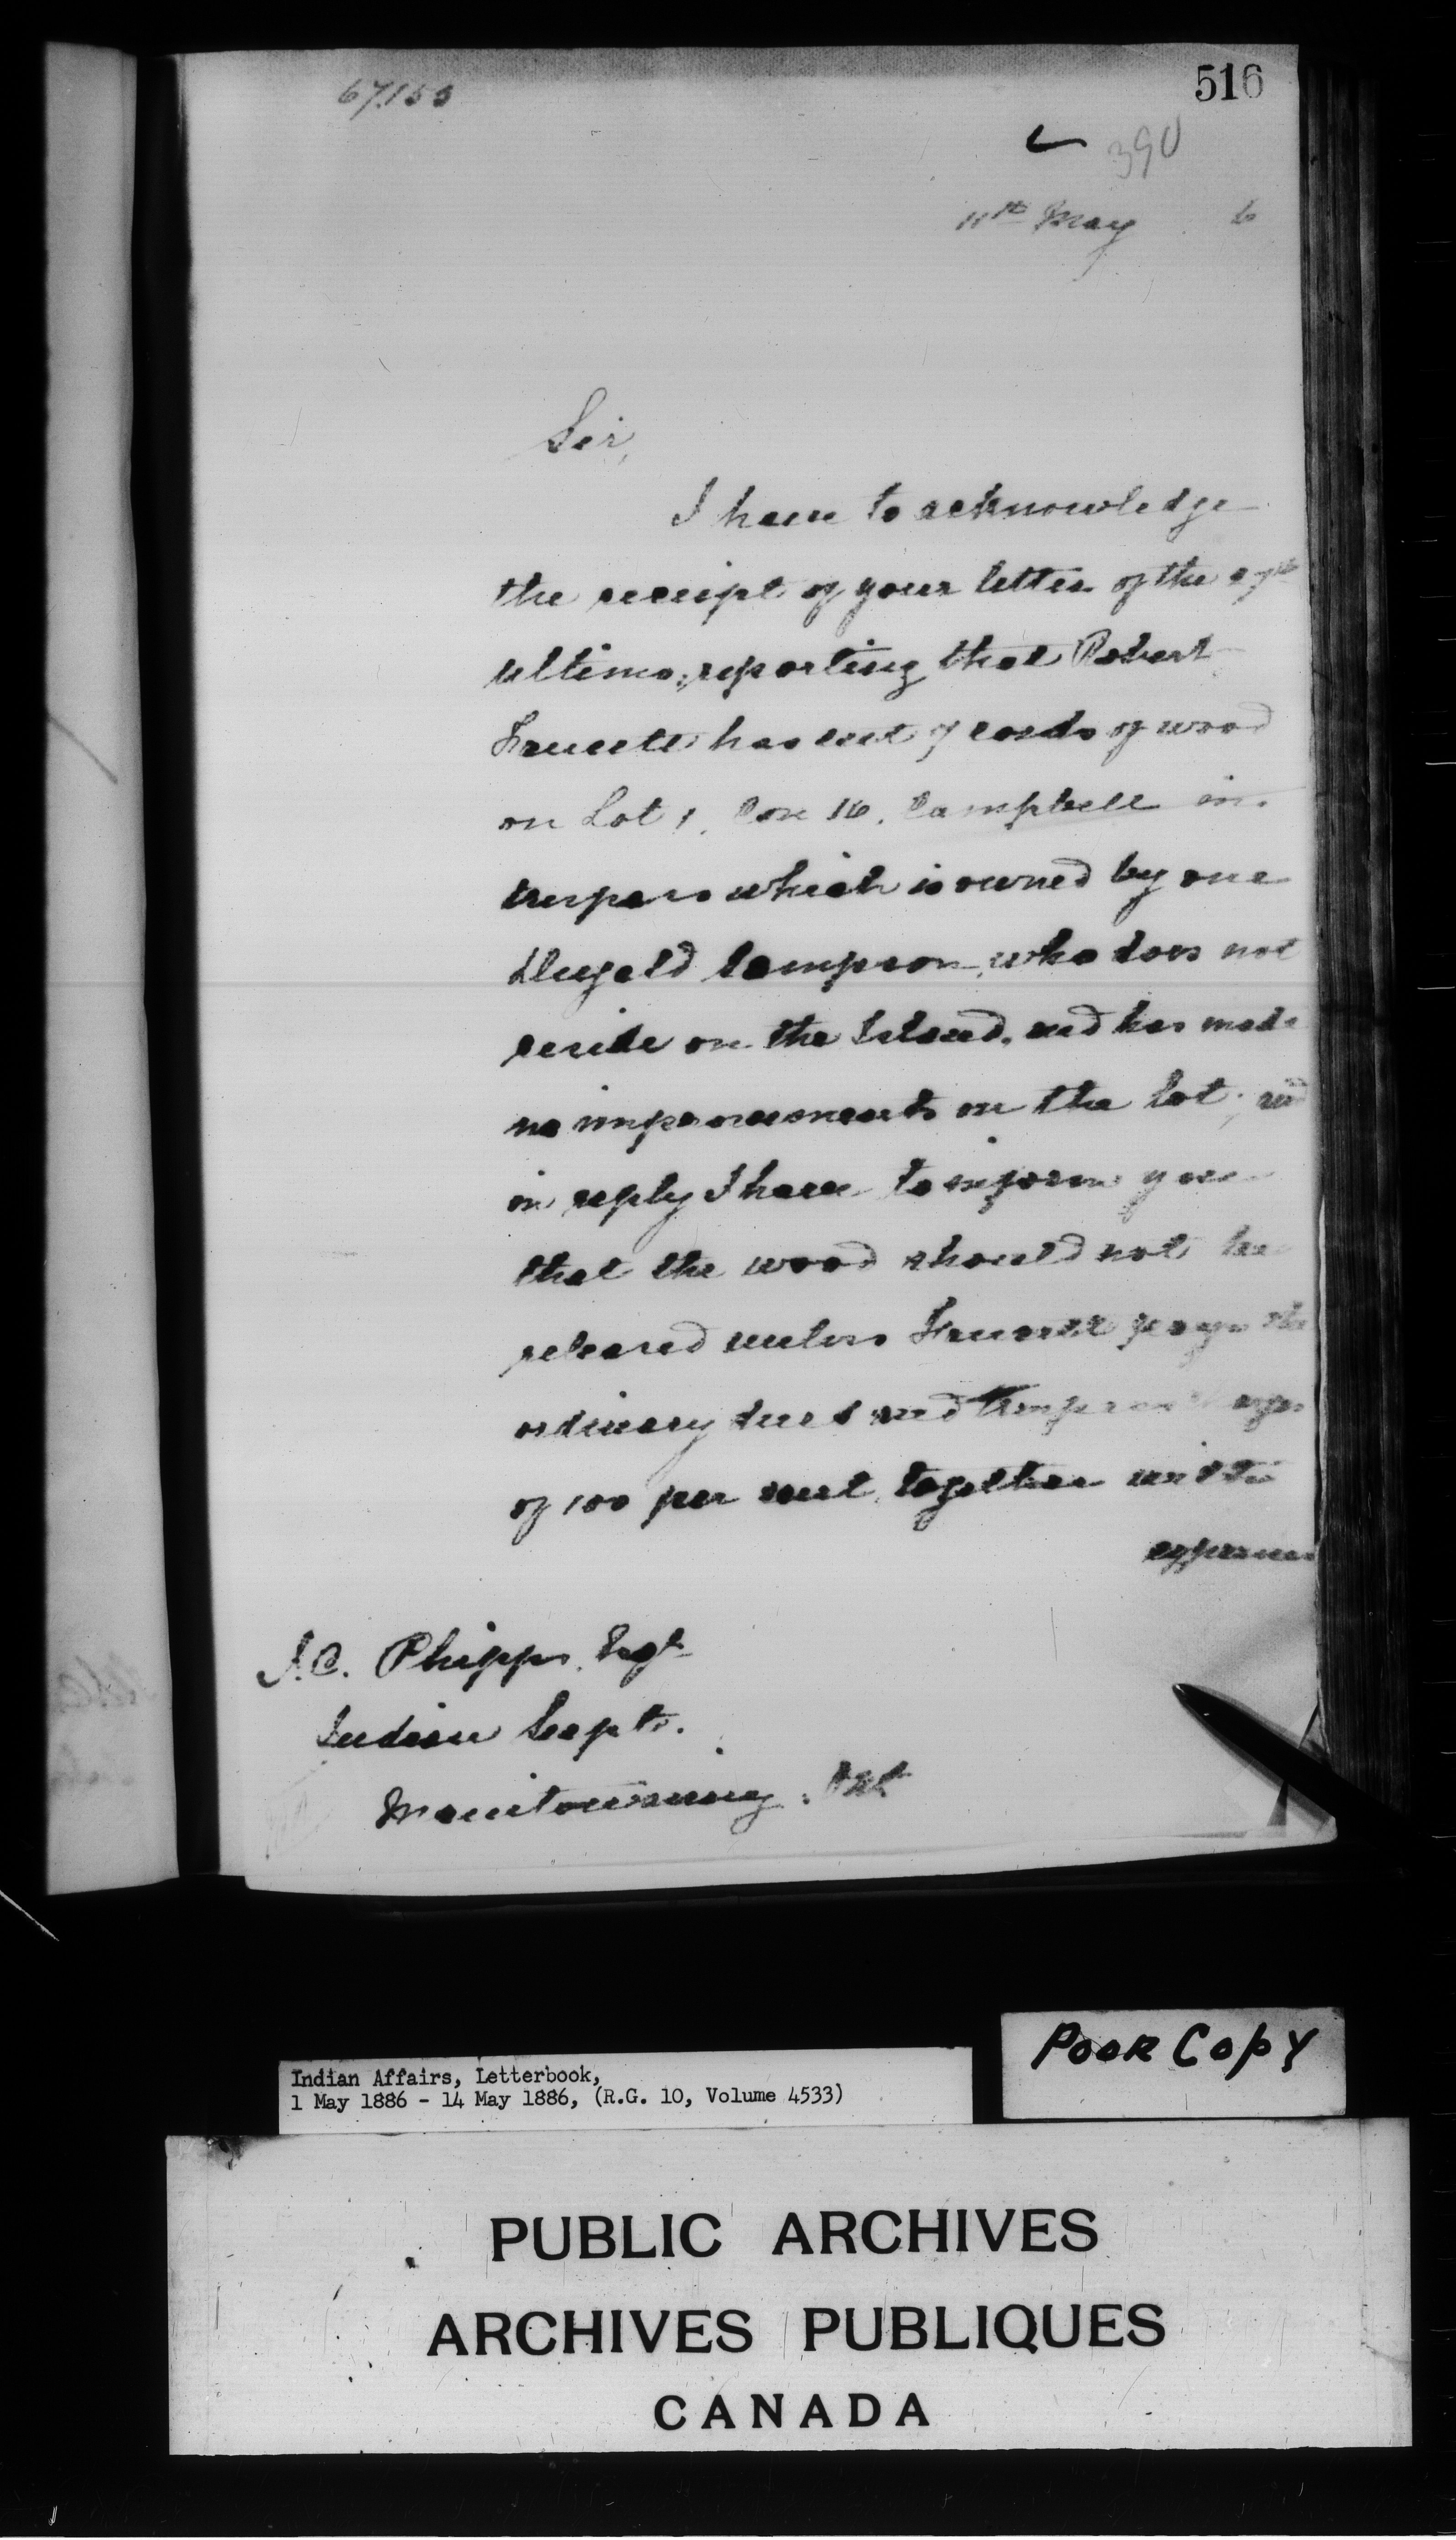 516
390
11th May 6
Sir,
I have to acknowledge
the receipt of your letter of the
ultimo, reporting that Robert
has cut 7 cords of wood
on Lot 1, Con 16, Campbell in
trespass which is owned by one
Dugald who does not
reside on the Island, and has made
no improvements on the lot; and
in reply I have to inform you
that the wood should not be
released unless pays the
ordinary dues and
of 100 per cent, together with
expenses
J.C. Phipps, Esqr
Indian Supt.
Manitowaning. Ont
Poor Copy
Indian Affairs, Letterbook,
1 May 1886 - 14 May 1886, (R.G. 10, Volume 4533)
PUBLIC ARCHIVES
ARCHIVES PUBLIQUES
CANADA